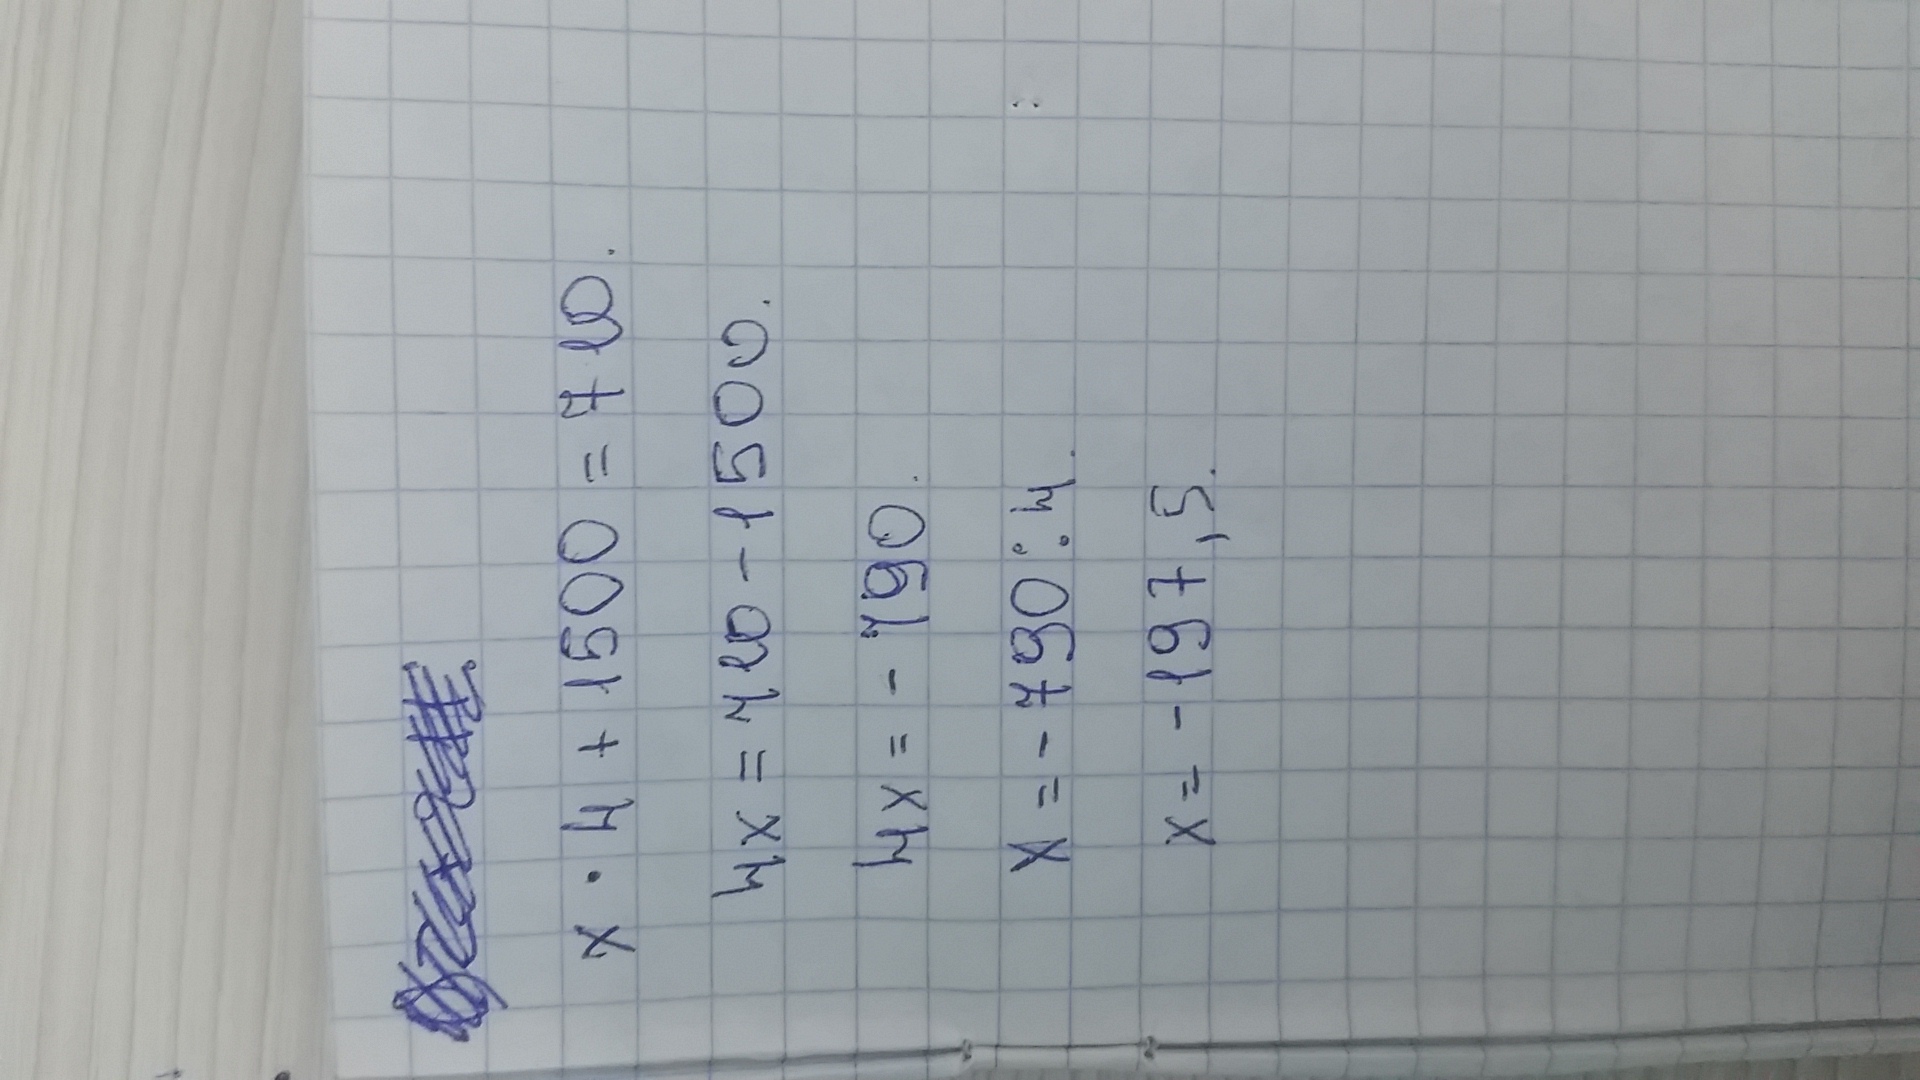 x · 4 + 1500 = 710.
4x = 710 - 1500.
4x = - 790.
x = - 790 : 4.
x = - 197,5.